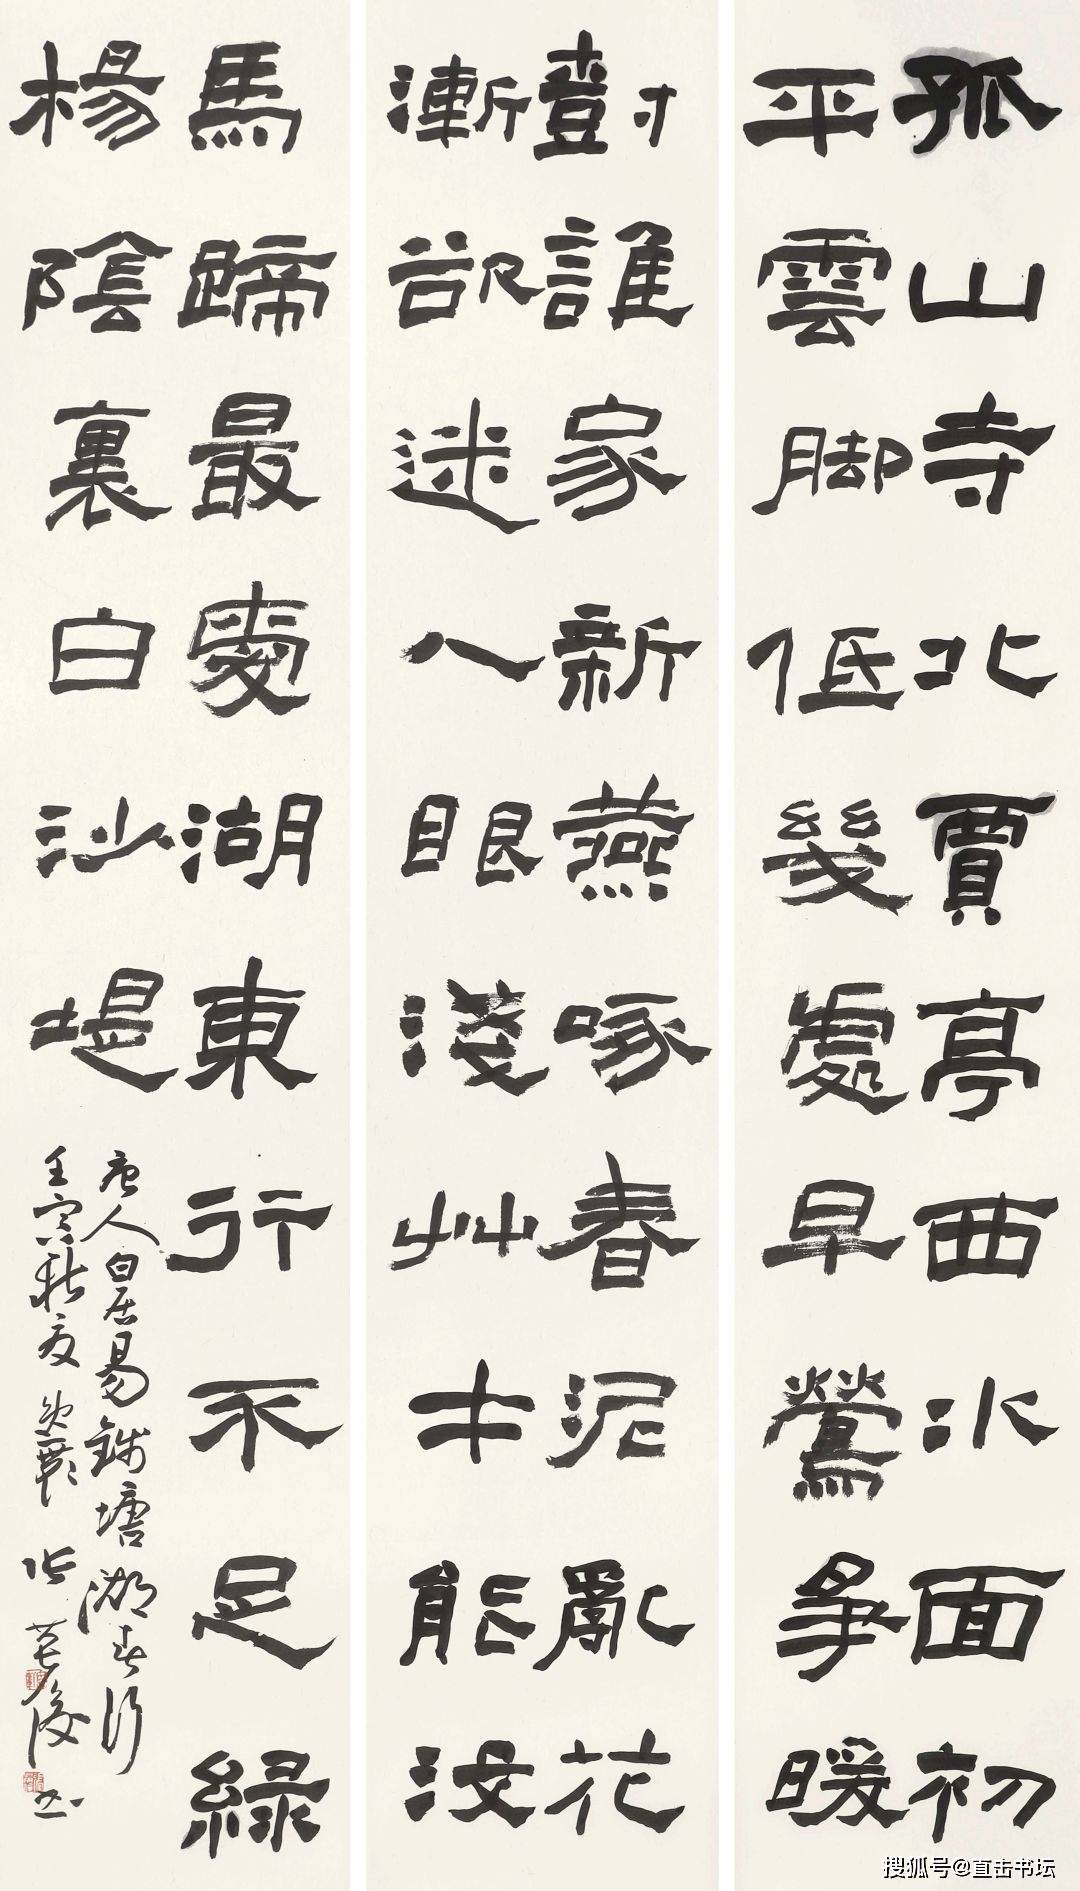 孤山寺北賈亭西水面初
平雲脚低幾處早鶯爭暖
樹誰家新燕啄春泥亂花
漸欲迷人眼淺艸才能沒
馬蹄最愛湖東行不足綠
楊陰裏白沙堤
唐人白居易錢塘湖春行
壬寅秋 张 书
搜狐号@直击书坛